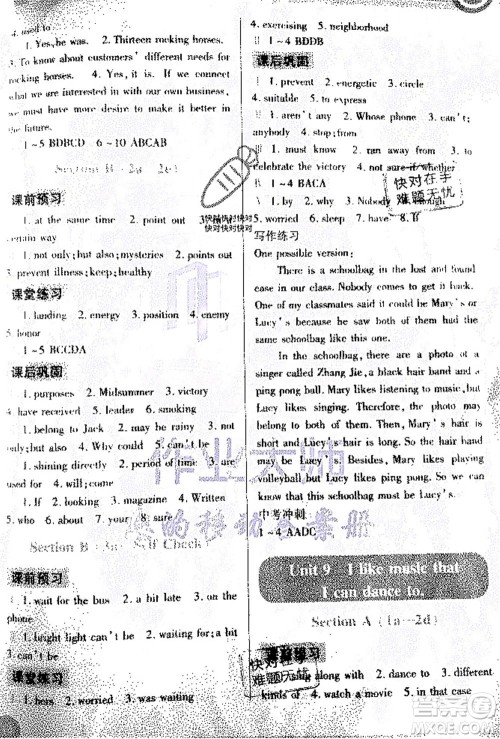 4. used to
Ⅰ 1. Yes, he was. 2. Thirteen rocking horses.
3. To know about customers' different needs for
rocking horses. 4. Yes, I think so. If we connect
what we are interested in with our own business,
we must have more desire to make it better in
the future.
Ⅱ 1~5 BDBCD 6~10 ABCAB
Section B (2a-2e)
课前预习
1. at the same time 2. point out
certain way
Ⅱ 1. not only; but also; mysteries 2. points out
3. prevent illness; keep; healthy
课堂练习
Ⅰ 1. landing 2. energy 3. position 4. enemy
5. honor
Ⅱ 1~5 BCCDA
课后巩固
Ⅰ 1. purposes 2. Midsummer 3. victory
4. have received 5. leader 6. smoking
Ⅱ 1. belong to Jack 2. may be running 3. not
only; but 4. Why could 5. can't be
1. shining 2. direction 3. period of time
used for 4. will; come
1. If 2. looking 3. magazine 4. Written
5. who 6. about 7. your 8. sure
Section B (3a-Self Check)
课前预习
1. wait for the bus 2. a bit late 3.
phone
1. bright light can't be 2. could be having
课堂练习
2. worried 3. was waiting
4. exercising 5. neighborhood
1~4 BDDB
课后巩固
Ⅰ 1. prevent 2. energetic 3. circle
4. suitable 5. to express
Ⅱ 1. aren't any 2. Whose phone 3. can't;
anybody 4. stop from
Ⅲ 1. must know 2. ran away from 3. to
celebrate the victory 4. not sure if/whether
1~4 BACA
1. and 2. why 3. Nobody 4. enough
5. worried 6. sleep 7. have 8. If
写作练习
One possible version:
There is a schoolbag in the lost and found
case in our class. Nobody comes to get it back.
One of my classmates said it could be Mary's or
Lucy's because he saw both of them had the
same schoolbag.
In the schoolbag, there are a photo of a
singer called Zhang Jie, a black hair band and a
ping pong ball. Mary likes listening to music, but
Lucy doesn't. Therefore, the photo can't be
Lucy's but might be Mary's. Mary's hair is
short and Lucy's hair is long. So the hair band
may be Lucy's. Besides, Mary likes playing
volleyball but Lucy likes ping pong. So I'm sure
that this schoolbag must be Lucy's.
中考冲刺
1~4 AADC
Unit 9 I like music that
I can dance to.
Section A (1a-2d)
课前预习
sing along with 2. dance to 3. different
kinds of 4. watch a movie 5. in that case
快对快对快对
快对快对快对
快对在手
难题无忧
快对在手
难题无忧
作业大师
答案圈
MXQE.COM